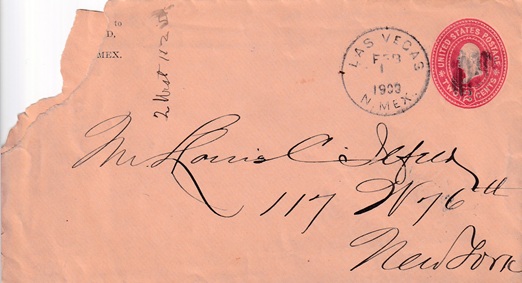 to
D.
MEX.
2 West 112
LAS VEGAS
FEB
1
1903
N. MEX.
UNITED STATES POSTAGE
TWO CENTS
Mr. Louis C. Ilfeld
117 W 76th
New York